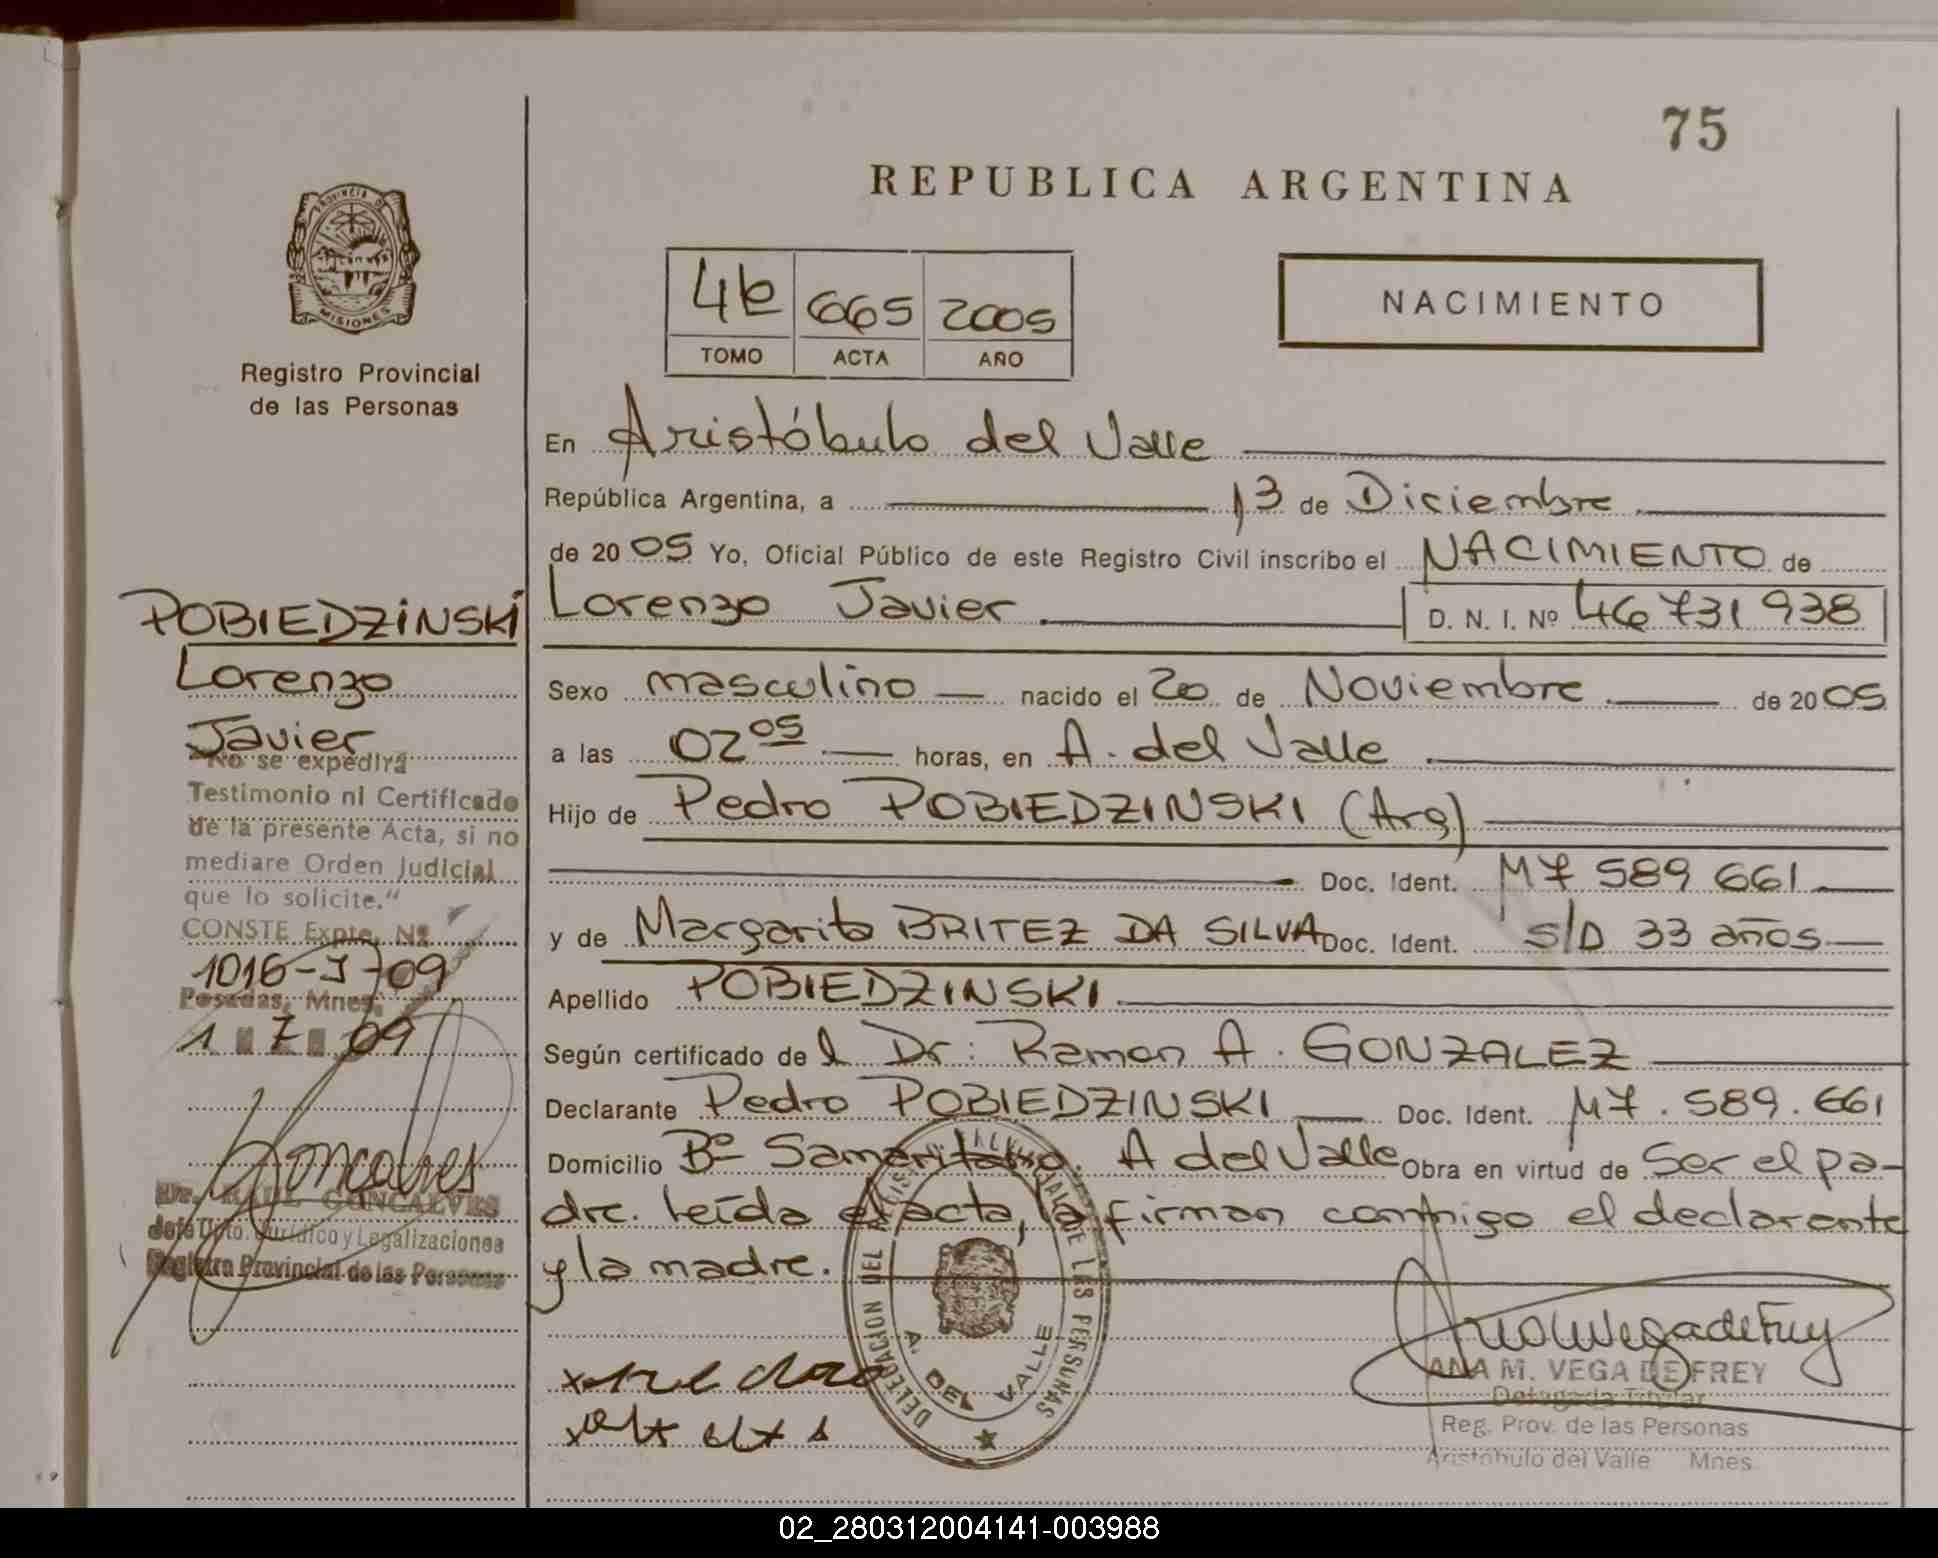 75
REPUBLICA ARGENTINA
PROVINCIA DE
MISIONES
Registro Provincial
de las Personas
4b 665 2005
TOMO ACTA AÑO
NACIMIENTO
En Aristóbulo del Valle
República Argentina, a 13 de Diciembre
de 2005 Yo, Oficial Público de este Registro Civil inscribo el NACIMIENTO de
Lorenzo Javier D. N. I. Nº 46 731 938
Sexo masculino nacido el 20 de Noviembre de 2005
a las 02 05 horas, en A. del Valle
Hijo de Pedro POBIEDZINSKI (Arg)
Doc. Ident. M7 589 661
y de Margarita BRITEZ DA SILVA Doc. Ident. S/D 33 años
Apellido POBIEDZINSKI
Según certificado de l Dr: Ramon A. GONZALEZ
Declarante Pedro POBIEDZINSKI Doc. Ident. M7.589.661
Domicilio Bº Samaritano. A del Valle Obra en virtud de Ser el pa-
dre. leída el acta, la firman conmigo el declarante
y la madre.
POBIEDZINSKI
Lorenzo
Javier
"No se expedirá
Testimonio ni Certificado
de la presente Acta, si no
mediare Orden Judicial
que lo solicite."
CONSTE Expte. Nº
1016-J-09
Posadas, Mnes,
1 7 09
Goncalves
RAUL GONCALVES
Jefe Dpto. Jurídico y Legalizaciones
Registro Provincial de las Personas
DELEGACION DEL REGISTRO PROVINCIAL DE LAS PERSONAS
A. DEL VALLE
ANA M. VEGA DE FREY
Delegada Titular
Reg. Prov. de las Personas
Aristóbulo del Valle Mnes.
02_280312004141-003988